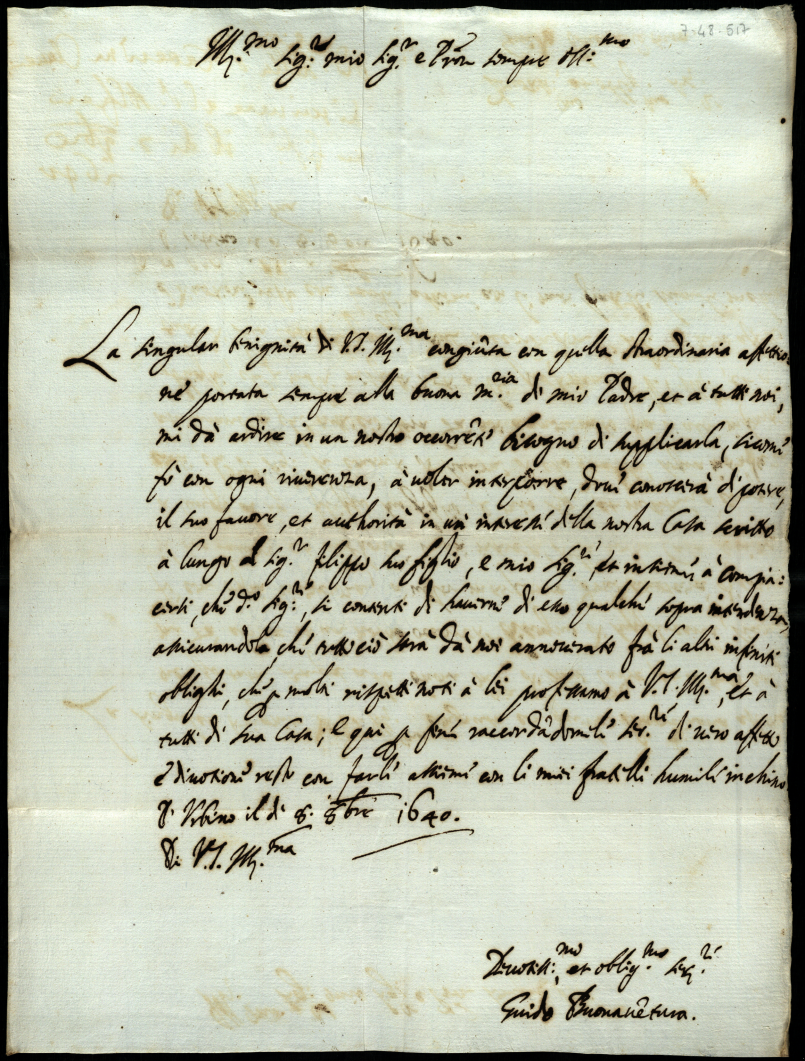 7-48-517
Ill.mo Sig.r mio Sig.r e Pron sempre oss.mo
La singular benignità di V.S. Ill.ma congiũta con quella straordinaria affettio:
ne portata sempre alla buona m.ria di mio Padre, et à tutti noi,
mi dà ardire in un nostro occorrẽte bisogno di supplicarla, sicome
fò con ogni riverenza, à voler interporre, dove conoscerà di potere,
il suo favore, et authorità in un interesse della nostra Casa scritto
à lungo al Sig.r Filippo suo figlio, e mio Sig.re, et insieme à compia:
cersi, che d.o Sig.re, si contenti di haverne di esso qualche sopra intendenza,
assicurandola, che tutto ciò sarà dà noi annoverato frà li altri infiniti
oblighi, che p molti rispetti noti à lei professamo à V.S. Ill.ma, et à
tutti di sua Casa; e qui p fine raccordãdomele ser.re di vero affetto
e divotione resto con farle assieme con li miei fratelli humile inchino
D'Urbino il dì 8. 8bre 1640.
Di V.S. Ill.ma
Devotiss.mo, et oblig.mo ser.re
Guido Buonavẽtura.